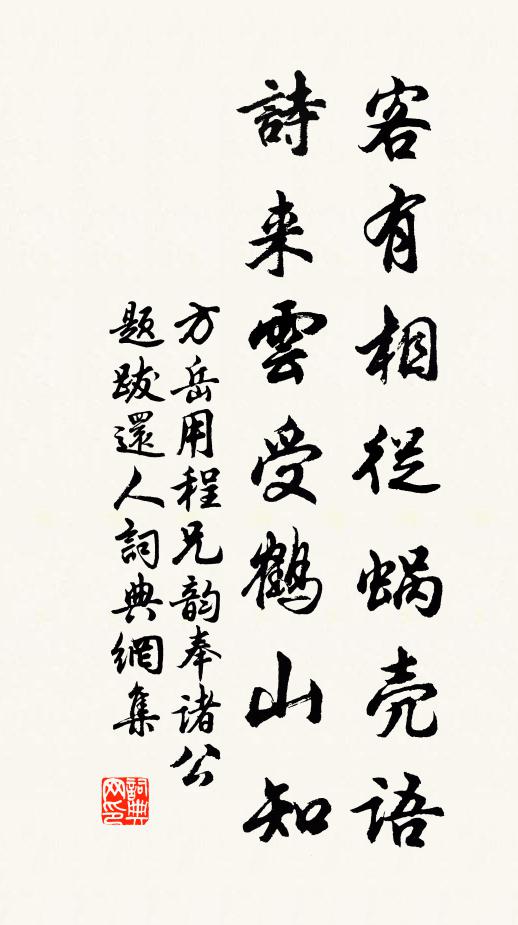 客有相從蝸壳語
詩来雲受鶴山知
方岳用程兄韵奉诸公
题跋還人詞典網集
詞典网印